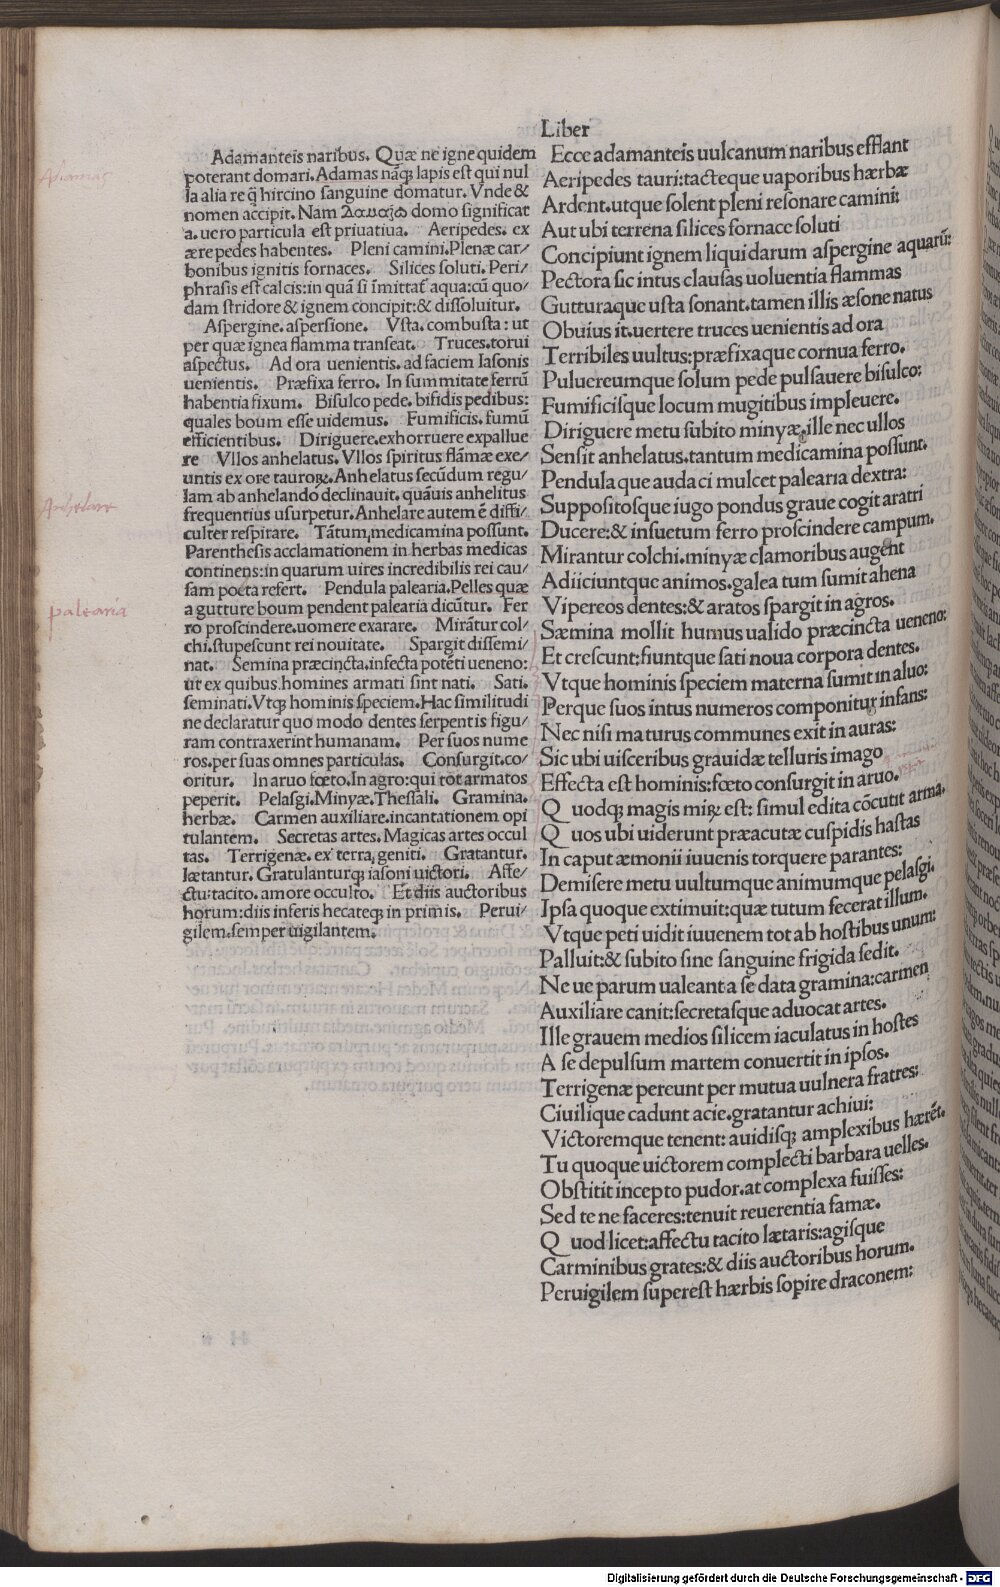 Liber
Adiamas
Adamanteis naribus. Quæ ne igne quidem
poterant domari. Adamas nãqꝫ lapis est qui nul
la alia re q̃ hircino sanguine domatur. Vnde &
nomen accipit. Nam domo significat
a. uero particula est priuatiua. Aeripedes. ex
ære pedes habentes. Pleni camini. Plenæ car/
bonibus ignitis fornaces. Silices soluti. Peri/
phrasis est calcis: in quã si ĩmittat̃ aqua: cũ quo/
dam stridore & ignem concipit: & dissoluitur.
Aspergine. aspersione. Vsta. combusta: ut
per quæ ignea flamma transeat. Truces. torui
aspectus. Ad ora uenientis. ad faciem Iasonis
uenientis. Præfixa ferro. In summitate ferrũ
habentia fixum. Bisulco pede. bifidis pedibus:
quales boum esse uidemus. Fumificis. fumũ
efficientibus. Diriguere. exhorruere expallue
re Vllos anhelatus. Vllos spiritus flãmæ exe/
untis ex ore tauroꝝ. Anhelatus secũdum regu/
lam ab anhelando declinauit. quãuis anhelitus
Anhelare
frequentius usurpetur. Anhelare autem ẽ diffi/
culter respirare. Tãtum medicamina possunt.
Parenthesis acclamationem in herbas medicas
continens: in quarum uires incredibilis rei cau/
sam poeta refert. Pendula palearia. Pelles quæ
palearia
a gutture boum pendent palearia dicũtur. Fer
ro proscindere. uomere exarare. Mirãtur col/
chi. stupescunt rei nouitate. Spargit dissemi/
nat. Semina præcincta. infecta potẽti ueneno:
ut ex quibus homines armati sint nati. Sati.
seminati. Vtqꝫ hominis speciem. Hac similitudi
ne declaratur quo modo dentes serpentis figu/
ram contraxerint humanam. Per suos nume
ros. per suas omnes particulas. Consurgit. co/
oritur. In aruo fœto. In agro: qui tot armatos
peperit. Pelasgi. Minyæ. Thessali. Gramina.
herbæ. Carmen auxiliare. incantationem opi
tulantem. Secretas artes. Magicas artes occul
tas. Terrigenæ. ex terra geniti. Gratantur.
lætantur. Gratulanturqꝫ iasoni uictori. Affe/
ctu: tacito. amore occulto. Et diis auctoribus
horum: diis inferis hecateqꝫ in primis. Perui/
gilem. semper uigilantem.
Ecce adamanteis uulcanum naribus efflant
Aeripedes tauri: tacteque uaporibus hærbæ
Ardent. utque solent pleni resonare camini:
Aut ubi terrena silices fornace soluti
Concipiunt ignem liquidarum aspergine aquarũ:
Pectora sic intus clausas uoluentia flammas
Gutturaque usta sonant. tamen illis æsone natus
Obuius it. uertere truces uenientis ad ora
Terribiles uultus: præfixaque cornua ferro.
Puluereumque solum pede pulsauere bisulco:
Fumificisque locum mugitibus impleuere.
Diriguere metu subito minyæ. ille nec ullos
Sensit anhelatus. tantum medicamina possunt.
Pendulaque audaci mulcet palearia dextra:
Suppositosque iugo pondus graue cogit aratri
Ducere: & insuetum ferro proscindere campum.
Mirantur colchi. minyæ clamoribus augent
Adiiciuntque animos. galea tum sumit ahena
Vipereos dentes: & aratos spargit in agros.
Sæmina mollit humus ualido præcincta ueneno:
Et crescunt: fiuntque sati noua corpora dentes.
Vtque hominis speciem materna sumit in aluo:
Perque suos intus numeros componitur infans:
Nec nisi maturus communes exit in auras:
Sic ubi uisceribus grauidæ telluris imago
Effecta est hominis: fœto consurgit in aruo.
Quodqꝫ magis miꝝ est: simul edita cõcutit arma.
Quos ubi uiderunt præacutæ cuspidis hastas
In caput æmonii iuuenis torquere parantes:
Demisere metu uultumque animumque pelasgi.
Ipsa quoque extimuit: quæ tutum fecerat illum.
Vtque peti uidit iuuenem tot ab hostibus unum:
Palluit: & subito sine sanguine frigida sedit.
Neue parum ualeant a se data gramina: carmen
Auxiliare canit: secretasque aduocat artes.
Ille grauem medios silicem iaculatus in hostes
A se depulsum martem conuertit in ipsos.
Terrigenæ pereunt per mutua uulnera fratres:
Ciuilique cadunt acie. gratantur achiui:
Victoremque tenent: auidisqꝫ amplexibus hærẽt.
Tu quoque uictorem complecti barbara uelles.
Obstitit incepto pudor. at complexa fuisses:
Sed te ne faceres: tenuit reuerentia famæ.
Quod licet: affectu tacito lætaris: agisque
Carminibus grates: & diis auctoribus horum.
Peruigilem superest hærbis sopire draconem:
Digitalisierung gefördert durch die Deutsche Forschungsgemeinschaft - DFG